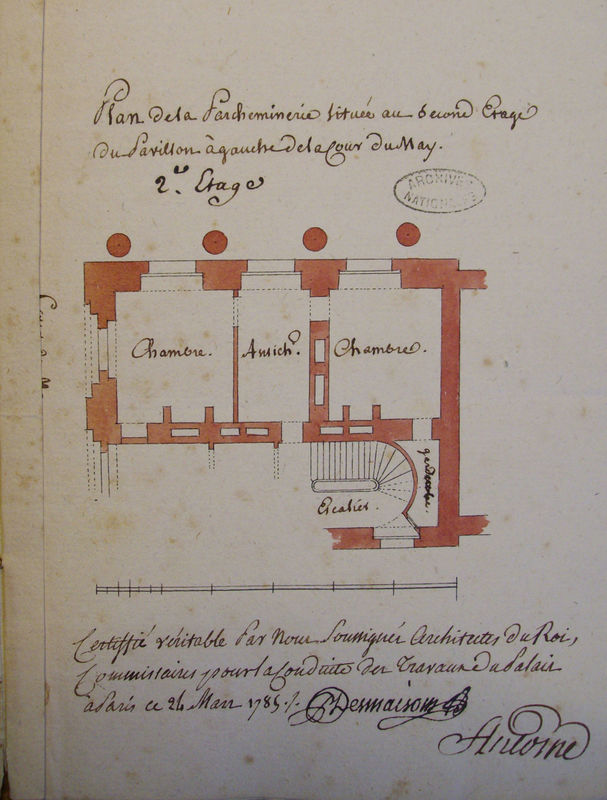 Plan de la Parcheminerie située au Second Etage
du Pavillon à gauche de la Cour du May.
2e. Etage
ARCHIVES
NATIONALES
Chambre.
Antich.
Chambre.
garderobe.
Escalier.
Certiffié véritable par Nous Soussignés Architectes du Roi,
Commissaires pour la Conduite des Travaux du Palais
à Paris ce 26 Mars 1785 ./.
Desmaisons
Antoine